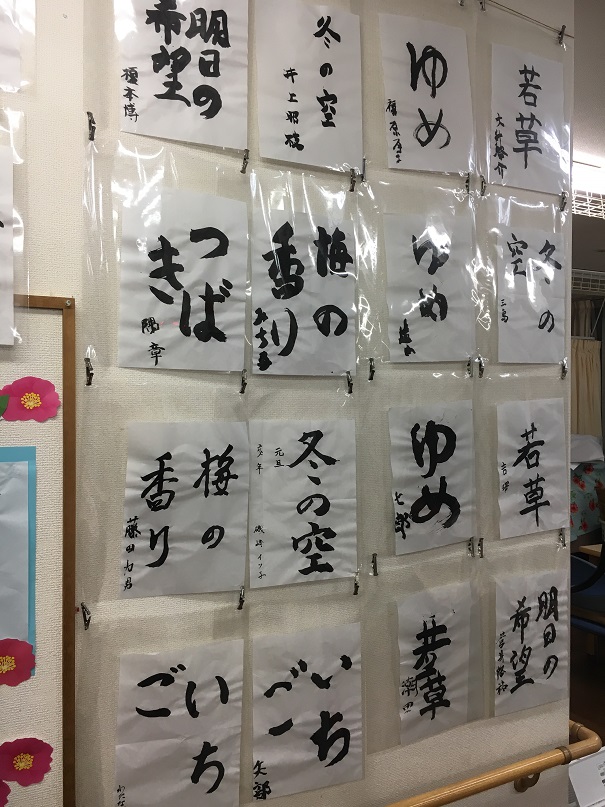 明日の
希望
榎本博
冬の空
井上
ゆめ
若草
つば
き
陽章
梅の
香り
ゆめ
冬の
空
三島
梅の
香り
藤田
冬の空
元旦
磯崎イツ子
ゆめ
七郎
若草
いち
ご
いち
ご
矢部
若草
明日の
希望